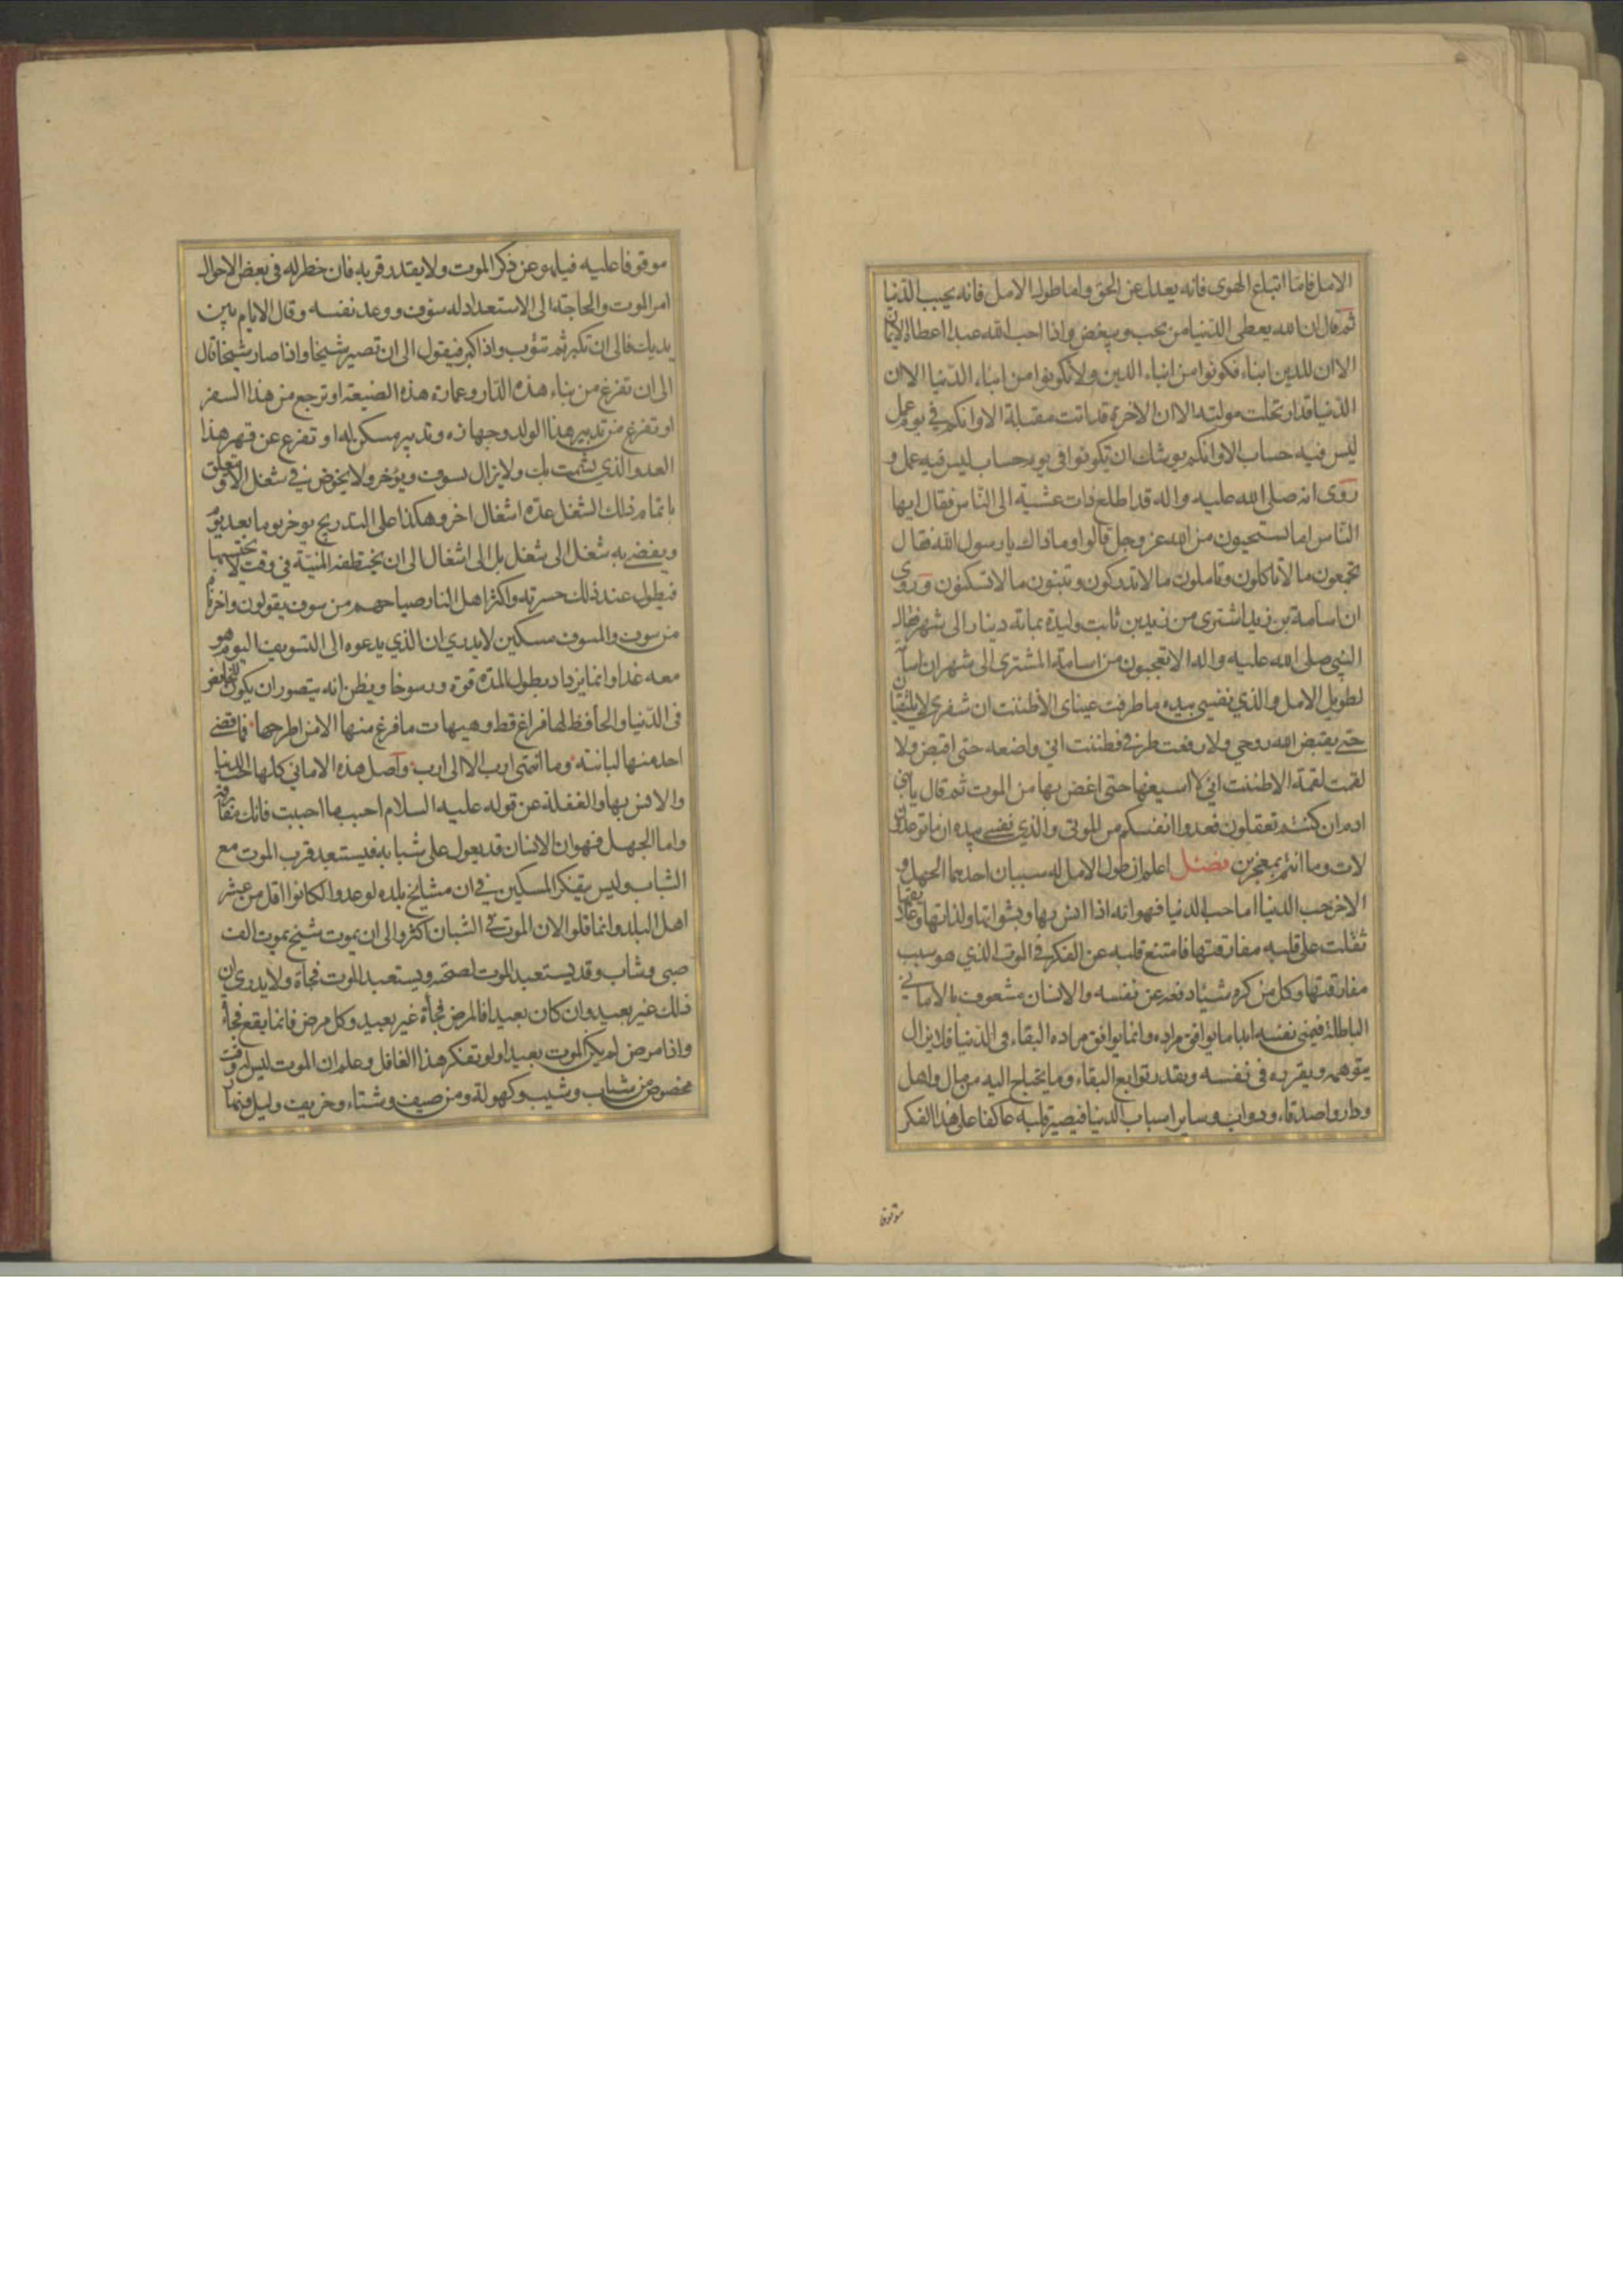 الامل فامّا اتباع الهوى فانه يعدل عن الحق واما طول الامل فانه يحبب الدّنيا
ثم قال ان الله يعطى الدّنيا من يحب ويبغض واذا احب الله عبدا اعطاه الايمان
الا ان للدين ابناء فكونوا من ابناء الدين ولا تكونوا من ابناء الدّنيا الا ان
الدّنيا قد ارتحلت مولية الا ان الاخرة قد اتت مقبلة الا وانكم في يوم عمل
ليس فيه حساب الا وانكم يوشك ان تكونوا في يوم حساب ليس فيه عمل و
روى انه صلى الله عليه واله قد اطلع ذات عشية الى النّاس فقال ايها
النّاس اما تستحيون من الله عز وجل قالوا وما ذاك يا رسول الله فقال
تجمعون ما لا تاكلون وتاملون ما لا تدركون وتبنون ما لا تسكنون وروى
ان اسامة بن زيد اشترى من زيد بن ثابت وليدة بماتة دينار الى شهر فقال
النبي صلى الله عليه واله الا تعجبون من اسامة المشترى الى شهر ان اسامة
لطويل الامل والذي نفسي بيده ما طرفت عيناى الا ظننت ان شفري لا يلتقيان
حتى يقبض الله روحي ولا رفعت طرفي فظننت اني واضعه حتى اقبض ولا
لقمت لقمة الا ظننت اني لا اسيغها حتى اغص بها من الموت ثم قال يا بني
ادم ان كنتم تعقلون فعدوا انفسكم من الموتى والذي نفسي بيده ان ما توعدون
لات وما انتم بمعجزين فصل اعلم ان طول الامل له سببان احدهما الجهل و
الاخر حب الدنيا اما حب الدنيا فهو انه اذا انس بها وبشهواتها ولذاتها وعلايقها
ثقلت على قلبه مفارقتها فامتنع قلبه عن الفكر في الموت الذي هو سبب
مفارقتها وكل من كره شيئا دفعه عن نفسه والانسان مشعوف بالاماني
الباطلة فيمني نفسه ابدا ما يوافق مراده وانما يوافق مراده البقاء في الدّنيا فلا يزال
يتوهمه ويقربه في نفسه ويقدر توابع البقاء وما يحتاج اليه من مال واهل
ودار واصدقاء ودواب وساير اسباب الدنيا فيصير قلبه عاكفا على هذا الفكر
موقوفا
موقوفا عليه فيلهو عن ذكر الموت ولا يقدر قربه فان خطر له في بعض الاحوال
امر الموت والحاجة الى الاستعداد له سوّف ووعد نفسه وقال الايام بين
يديك فالى ان تكبر ثم تتوب واذا كبر فيقول الى ان تصير شيخا واذا صار شيخا قال
الى ان تفرغ من بناء هذه الدّار وعمارة هذه الضيعة او ترجع من هذا السفر
او تفرغ من تدبير هذا الولد وجهازه وتدبير مسكن له او تفرغ عن قهر هذا
العدو الذي يشمت بك ولا يزال يسوف ويؤخر ولا يخوض في شغل الا وتعلق
باتمام ذلك الشغل عدّة اشغال اخر وهكذا على التدريج يؤخر يوما بعد يوم
ويفضي به شغل الى شغل بل الى اشغال الى ان يختطفه المنيّة في وقت لا يحتسبها
فيطول عند ذلك حسرته واكثر اهل النار صياحهم من سوف يقولون واحزناه
من سوف والمسوف مسكين لا يدري ان الذي يدعوه الى التسويف اليوم هو
معه غدا وانما يزداد بطول المدّة قوة ورسوخا ويظن انه يتصور ان يكون للخائض
في الدّنيا والحافظ لها فراغ قط وهيهات ما فرغ منها الا من اطرحها فما قضى
احد منها لبانته وما انتهى ارب الا الى ارب واصل هذه الاماني كلها حب الدنيا
والانس بها والغفلة عن قوله عليه السلام احبب ما احببت فانك مفارقه
واما الجهل فهو ان الانسان قد يعول على شبابه فيستبعد قرب الموت مع
الشباب وليس يتفكر المسكين في ان مشايخ بلده لو عدوا لكانوا اقل من عشر
اهل البلد وانما قلوا لان الموت في الشبان اكثر والى ان يموت شيخ يموت الف
صبي وشاب وقد يستبعد الموت لصحته ويستبعد الموت فجأة ولا يدرى ان
ذلك غير بعيد وان كان بعيدا فالمرض فجأة غير بعيد وكل مرض فانما يقع فجأة
واذا مرض لم يكن الموت بعيدا ولو تفكر هذا الغافل وعلم ان الموت ليس له وقت
مخصوص من شباب وشيب وكهولة ومن صيف وشتاء وخريف وليل